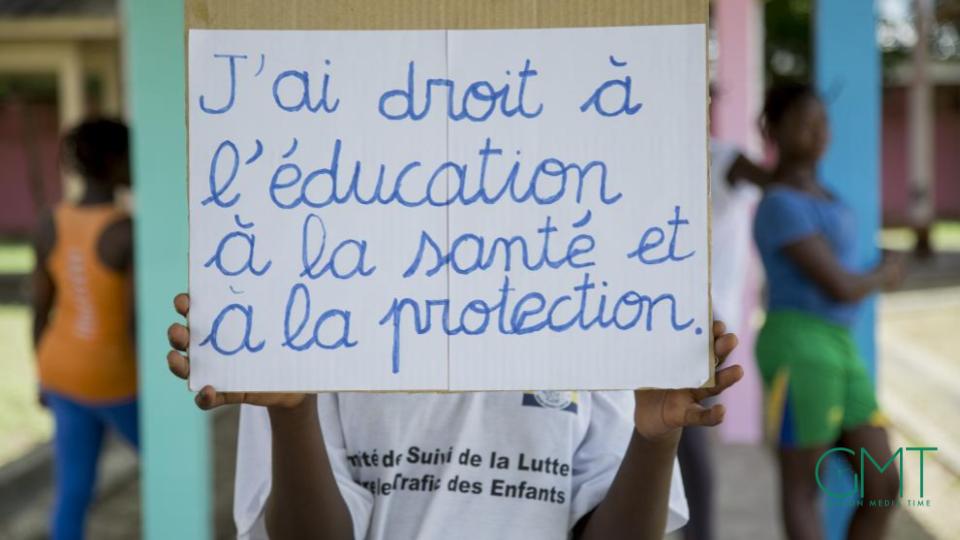 J'ai droit à
l'éducation
à la santé et
à la protection.
de Suivi de la Lutte
Trafic des Enfants
GMT
MEDIA TIME